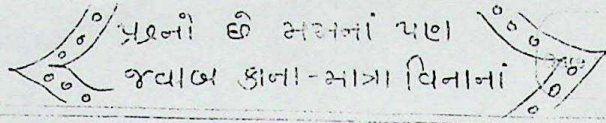 પ્રશ્નો છે મઝાનાં પણ
જવાબ કાના-માત્રા વિનાનાં